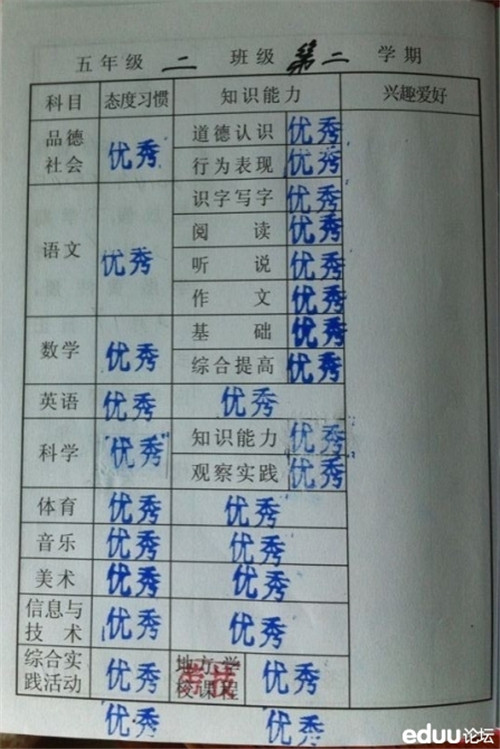 五年级 二 班级 第二 学期
科目 态度习惯 知识能力 兴趣爱好
品德社会 优秀 道德认识 优秀
行为表现 优秀
语文 优秀 识字写字 优秀
阅读 优秀
听说 优秀
作文 优秀
数学 优秀 基础 优秀
综合提高 优秀
英语 优秀 优秀
科学 优秀 知识能力 优秀
观察实践 优秀
体育 优秀 优秀
音乐 优秀 优秀
美术 优秀 优秀
信息与技术 优秀 优秀
综合实践活动 优秀 地方学校课程 优秀
优秀 优秀
eduu论坛